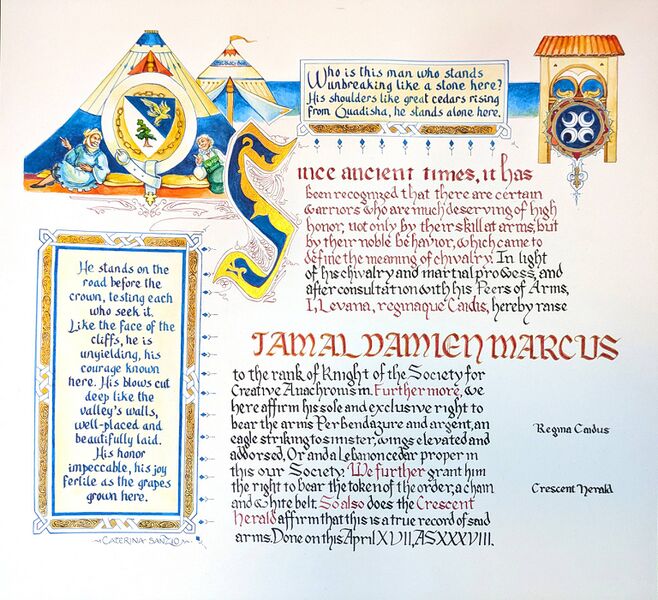 Who is this man who stands
unbreaking like a stone here?
His shoulders like great cedars rising
from Quadisha, he stands alone here.
Since ancient times, it has
been recognized that there are certain
warriors who are much deserving of high
honor, not only by their skill at arms, but
by their noble behavior, which came to
define the meaning of chivalry. In light
of his chivalry and martial prowess, and
after consultation with his Peers of Arms,
I, Levana, regina que Caidis, hereby raise
JAMAL DAMIEN MARCUS
to the rank of Knight of the Society for
Creative Anachronism. Furthermore, we
here affirm his sole and exclusive right to
bear the arms Per bend azure and argent, an
eagle striking to sinister, wings elevated and
addorsed, Or and a Lebanon cedar proper in
this our Society. We further grant him
the right to bear the token of the order, a chain
and white belt. So also does the Crescent
Herald affirm that this is a true record of said
arms. Done on this April XVII, AS XXXVIII.
He stands on the
road before the
crown, testing each
who seek it.
Like the face of the
cliffs, he is
unyielding, his
courage known
here. His blows cut
deep like the
valley's walls,
well-placed and
beautifully laid.
His honor
impeccable, his joy
fertile as the grapes
grown here.
~CATERINA SANZIO~
Regina Caidus
Crescent Herald